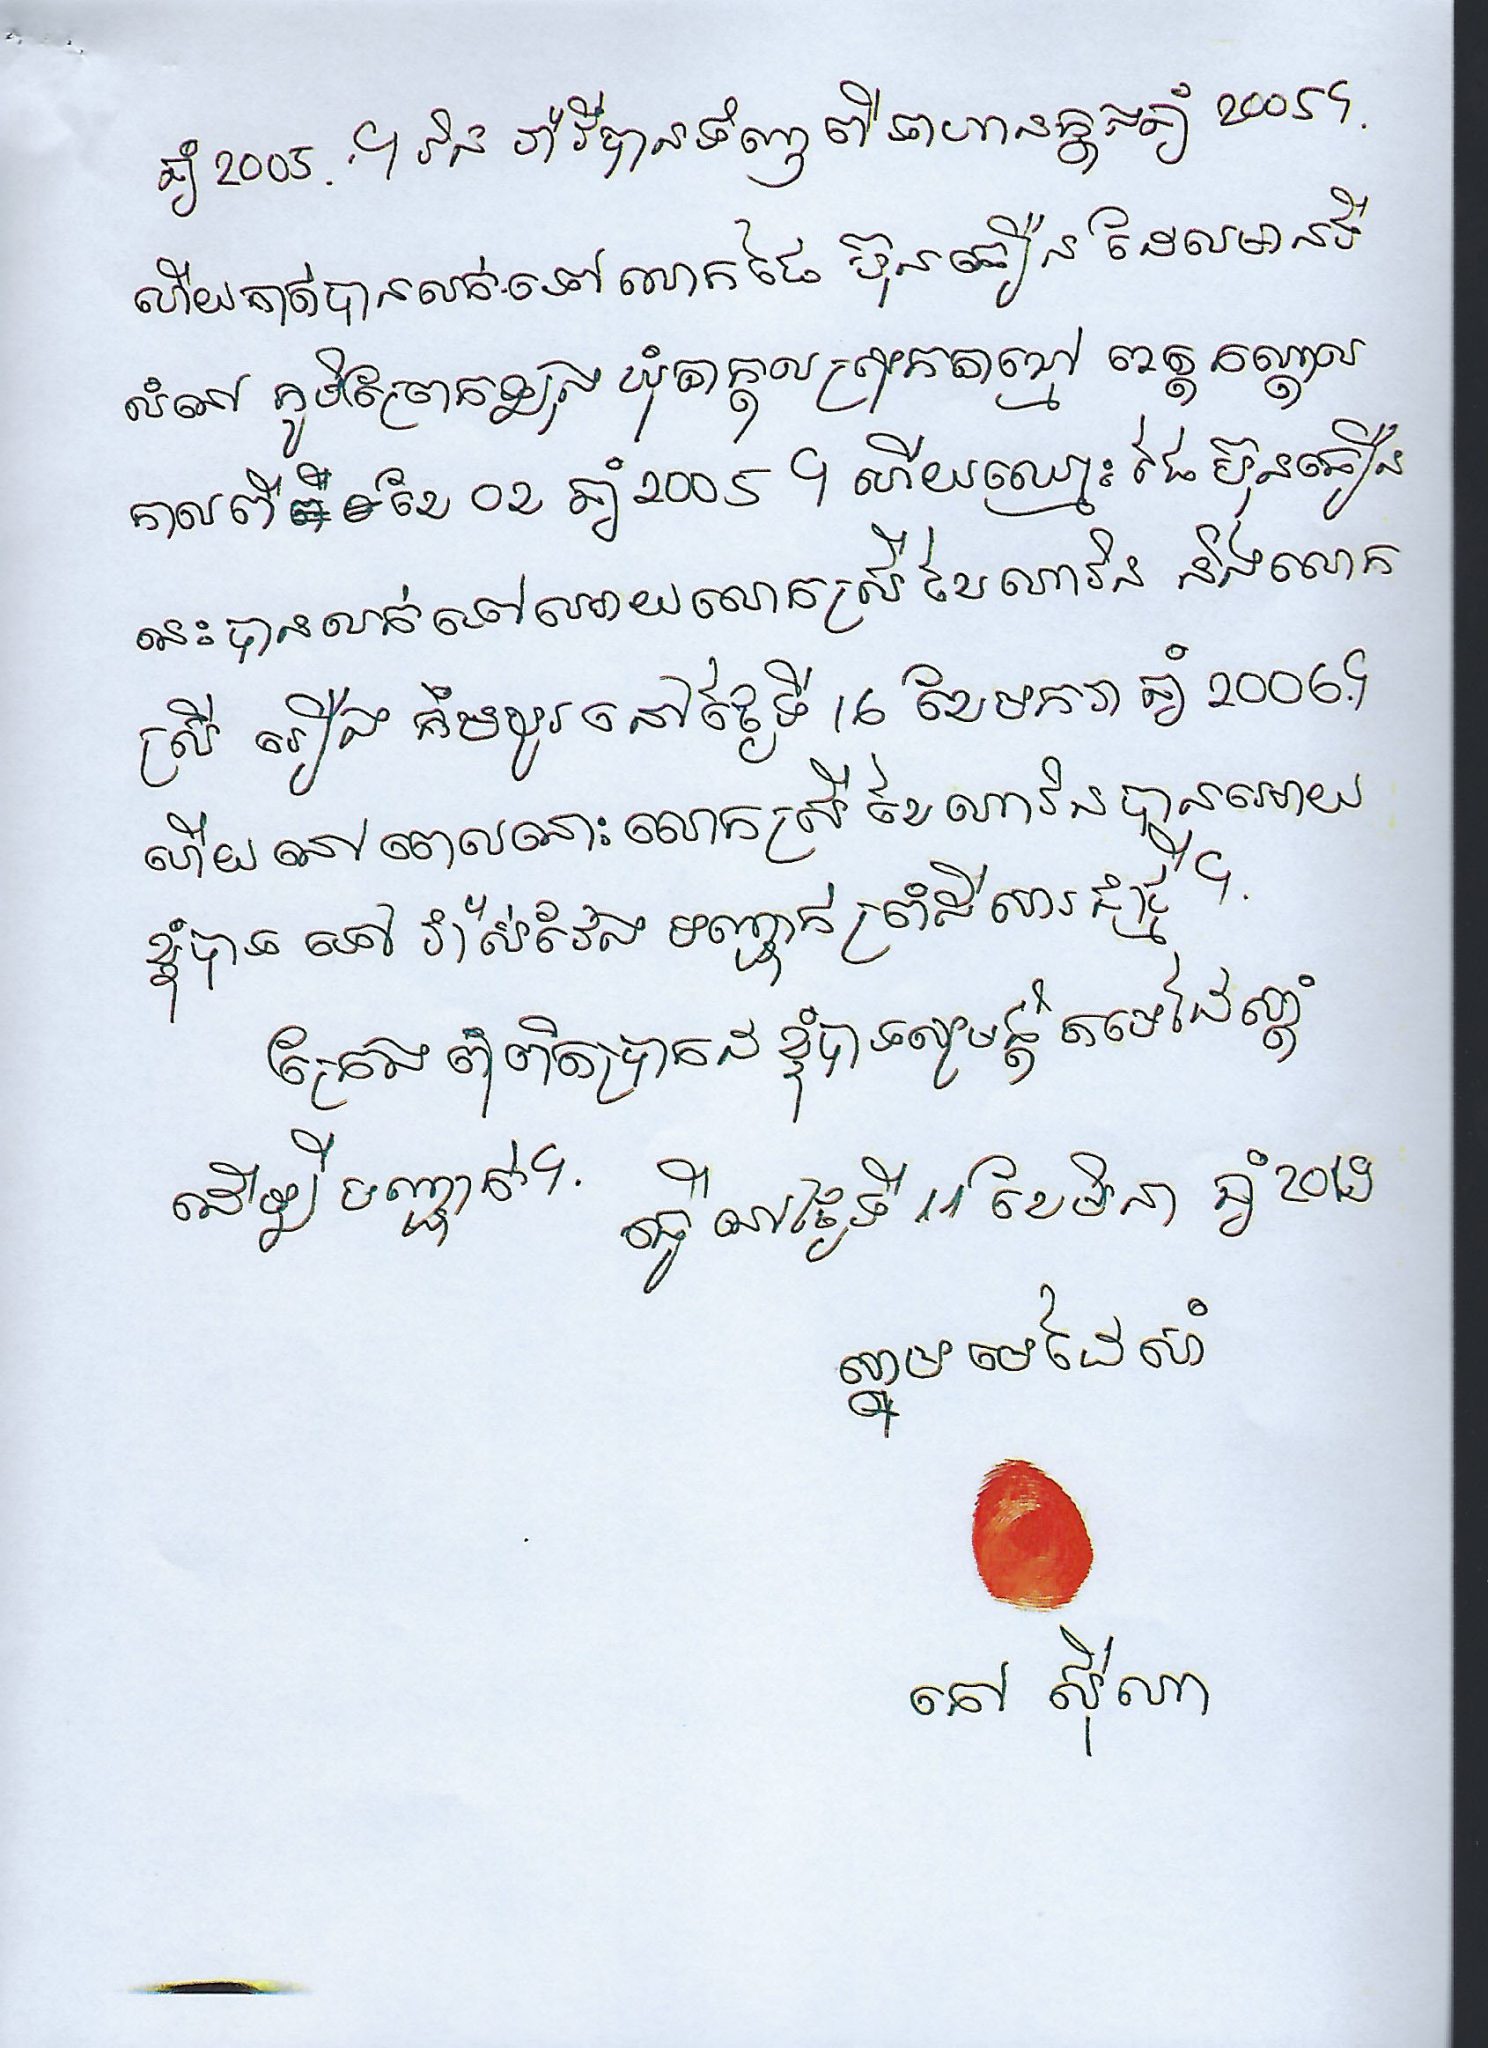 ឆ្នាំ 2005. ។ រិន វ៉ារីបានទិញពីទាហានក្នុងឆ្នាំ 2005។.
ហើយគាត់បានលក់ទៅលោក ប៊ុនធឿន ដែលមានទី
លំនៅ ភូមិព្រែកឃុំតាក្ដុល ស្រុកតាខ្មៅ ខេត្តកណ្ដាល
កាលពីខែ 02 ឆ្នាំ 2005 ។ ហើយឈ្មោះ ប៊ុនធឿន
នេះបានលក់ទៅអោយលោកស្រី ខែ ណារិន និងលោក
ស្រី រឿង គឹមយូរ នៅថ្ងៃទី 16 ខែមករា ឆ្នាំ 2006.។
ហើយនៅពេលនោះលោកស្រី ខែ ណារិនបានអោយ
ខ្ញុំបាទ ទៅ វ៉ាស់វែង បញ្ជាក់ព្រំដីសារជាថ្មី ។.
ក្រែងពុំពិតប្រាកដ ខ្ញុំបាទសូមផ្ដិតមេដៃស្ដាំ
ដើម្បីបញ្ជាក់។. ធ្វើនៅថ្ងៃទី 11 ខែមិនា ឆ្នាំ 2012
ស្នាមមេដៃស្ដាំ
នៅ ស៊ីណា